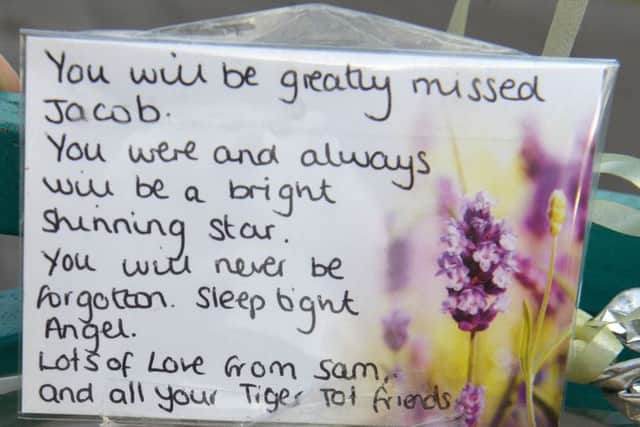 You will be greatly missed
Jacob.
You were and always
will be a bright
shinning star.
You will never be
forgotton. Sleep tight
Angel.
Lots of Love from Sam,
and all your Tiger Tot friends